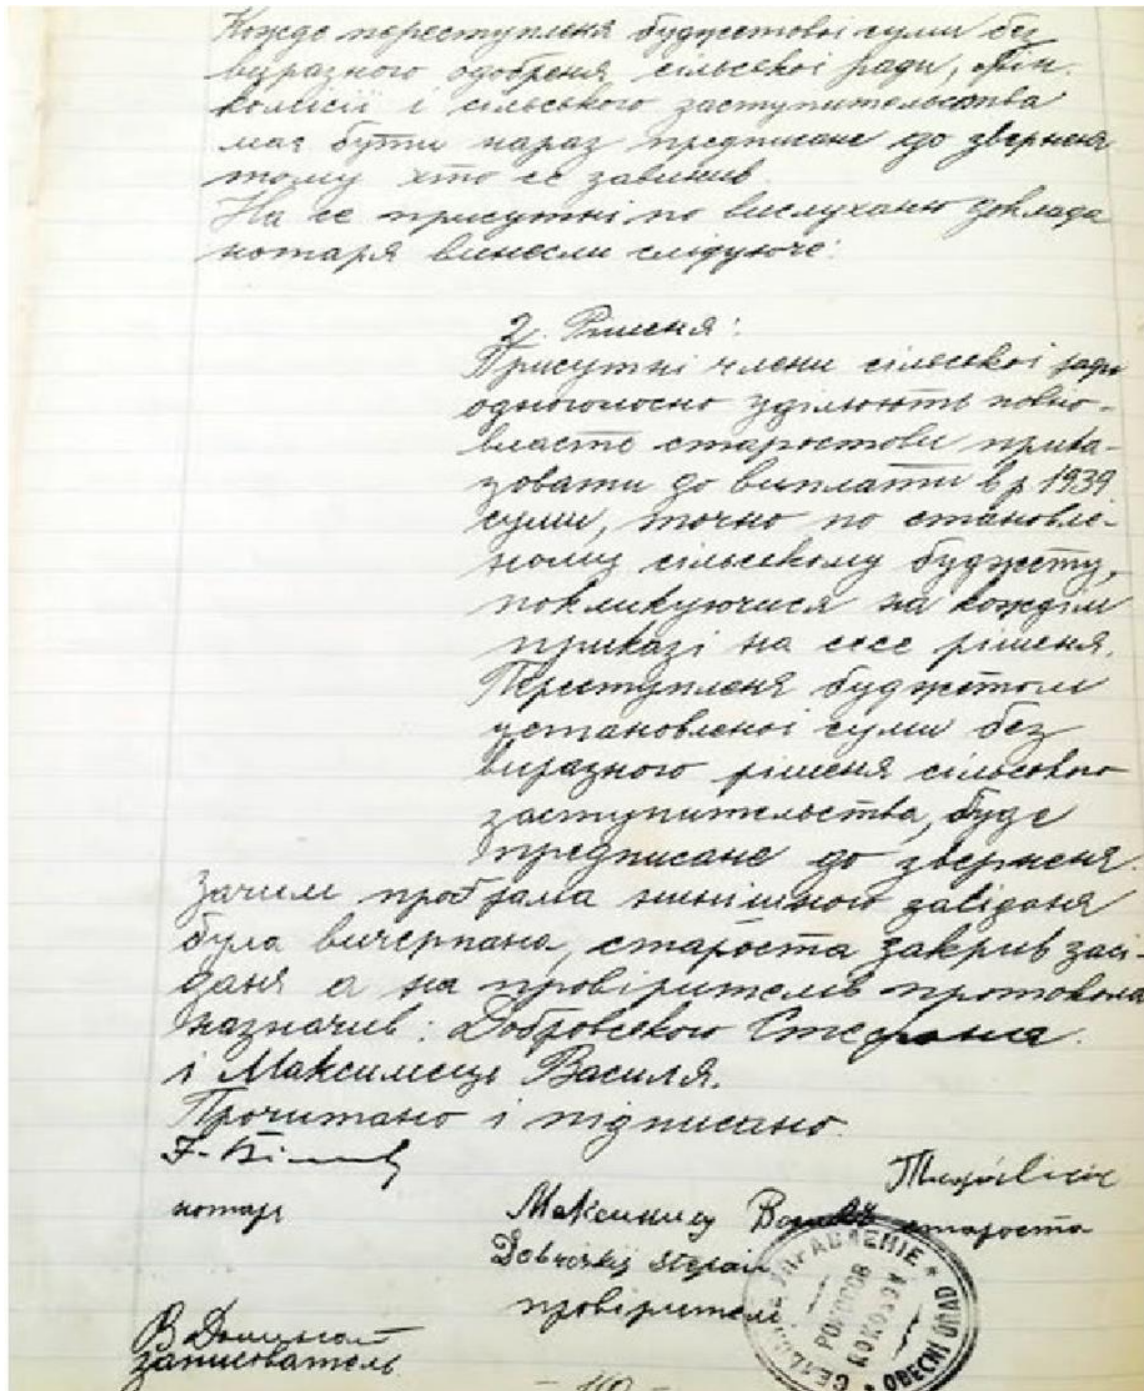 Кожде переступленя буджетової суми без
виразного одобреня сільської ради, фін.
комісії і сільського заступительства
має бути нараз предписане до зверненя
тому хто се завинив.
На се присутні по вислуханю доклада
нотаря винесли слідуюче:
2. Рішеня:
Присутні члени сільської ради
одноголосно уділюють повно-
власть старостови прика-
зовати до виплати в р. 1939
суми, точно по становле-
ному сільському буджету,
покликуючися на кождім
приказі на сесе рішеня.
Переступленя буджетом
установленої суми без
виразного рішеня сільского
заступительства, буде
предписане до зверненя.
Зачим проґрама нинішного засіданя
була вичерпана, староста закрив засі-
даня а на провірителів протокола
назначив: Добровского Стефана
і Максимець Василя.
Прочитано і підписано.
нотар
Максимец Василь староста
Dobrovskij Stefan
провірителі
записователь
СЕЛЬСКОЕ УПРАВЛЕНИЕ * OBECNÍ ÚŘAD *
РОКОСОВ
ROKOSOV
- 110 -